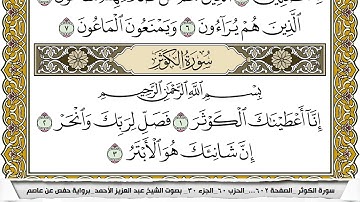 الَّذِينَ هُمْ يُرَآءُونَ ٦ وَيَمْنَعُونَ الْمَاعُونَ ٧
سُورَةُ الْكَوْثَرِ
بِسْمِ اللَّهِ الرَّحْمَٰنِ الرَّحِيمِ
إِنَّآ أَعْطَيْنَٰكَ الْكَوْثَرَ ١ فَصَلِّ لِرَبِّكَ وَانْحَرْ ٢
إِنَّ شَانِئَكَ هُوَ الْأَبْتَرُ ٣
سورة الكوثر _الصفحة ٦٠٢_... الحزب ٦٠_الجزء ٣٠_ بصوت الشيخ عبد العزيز الأحمد_برواية حفص عن عاصم